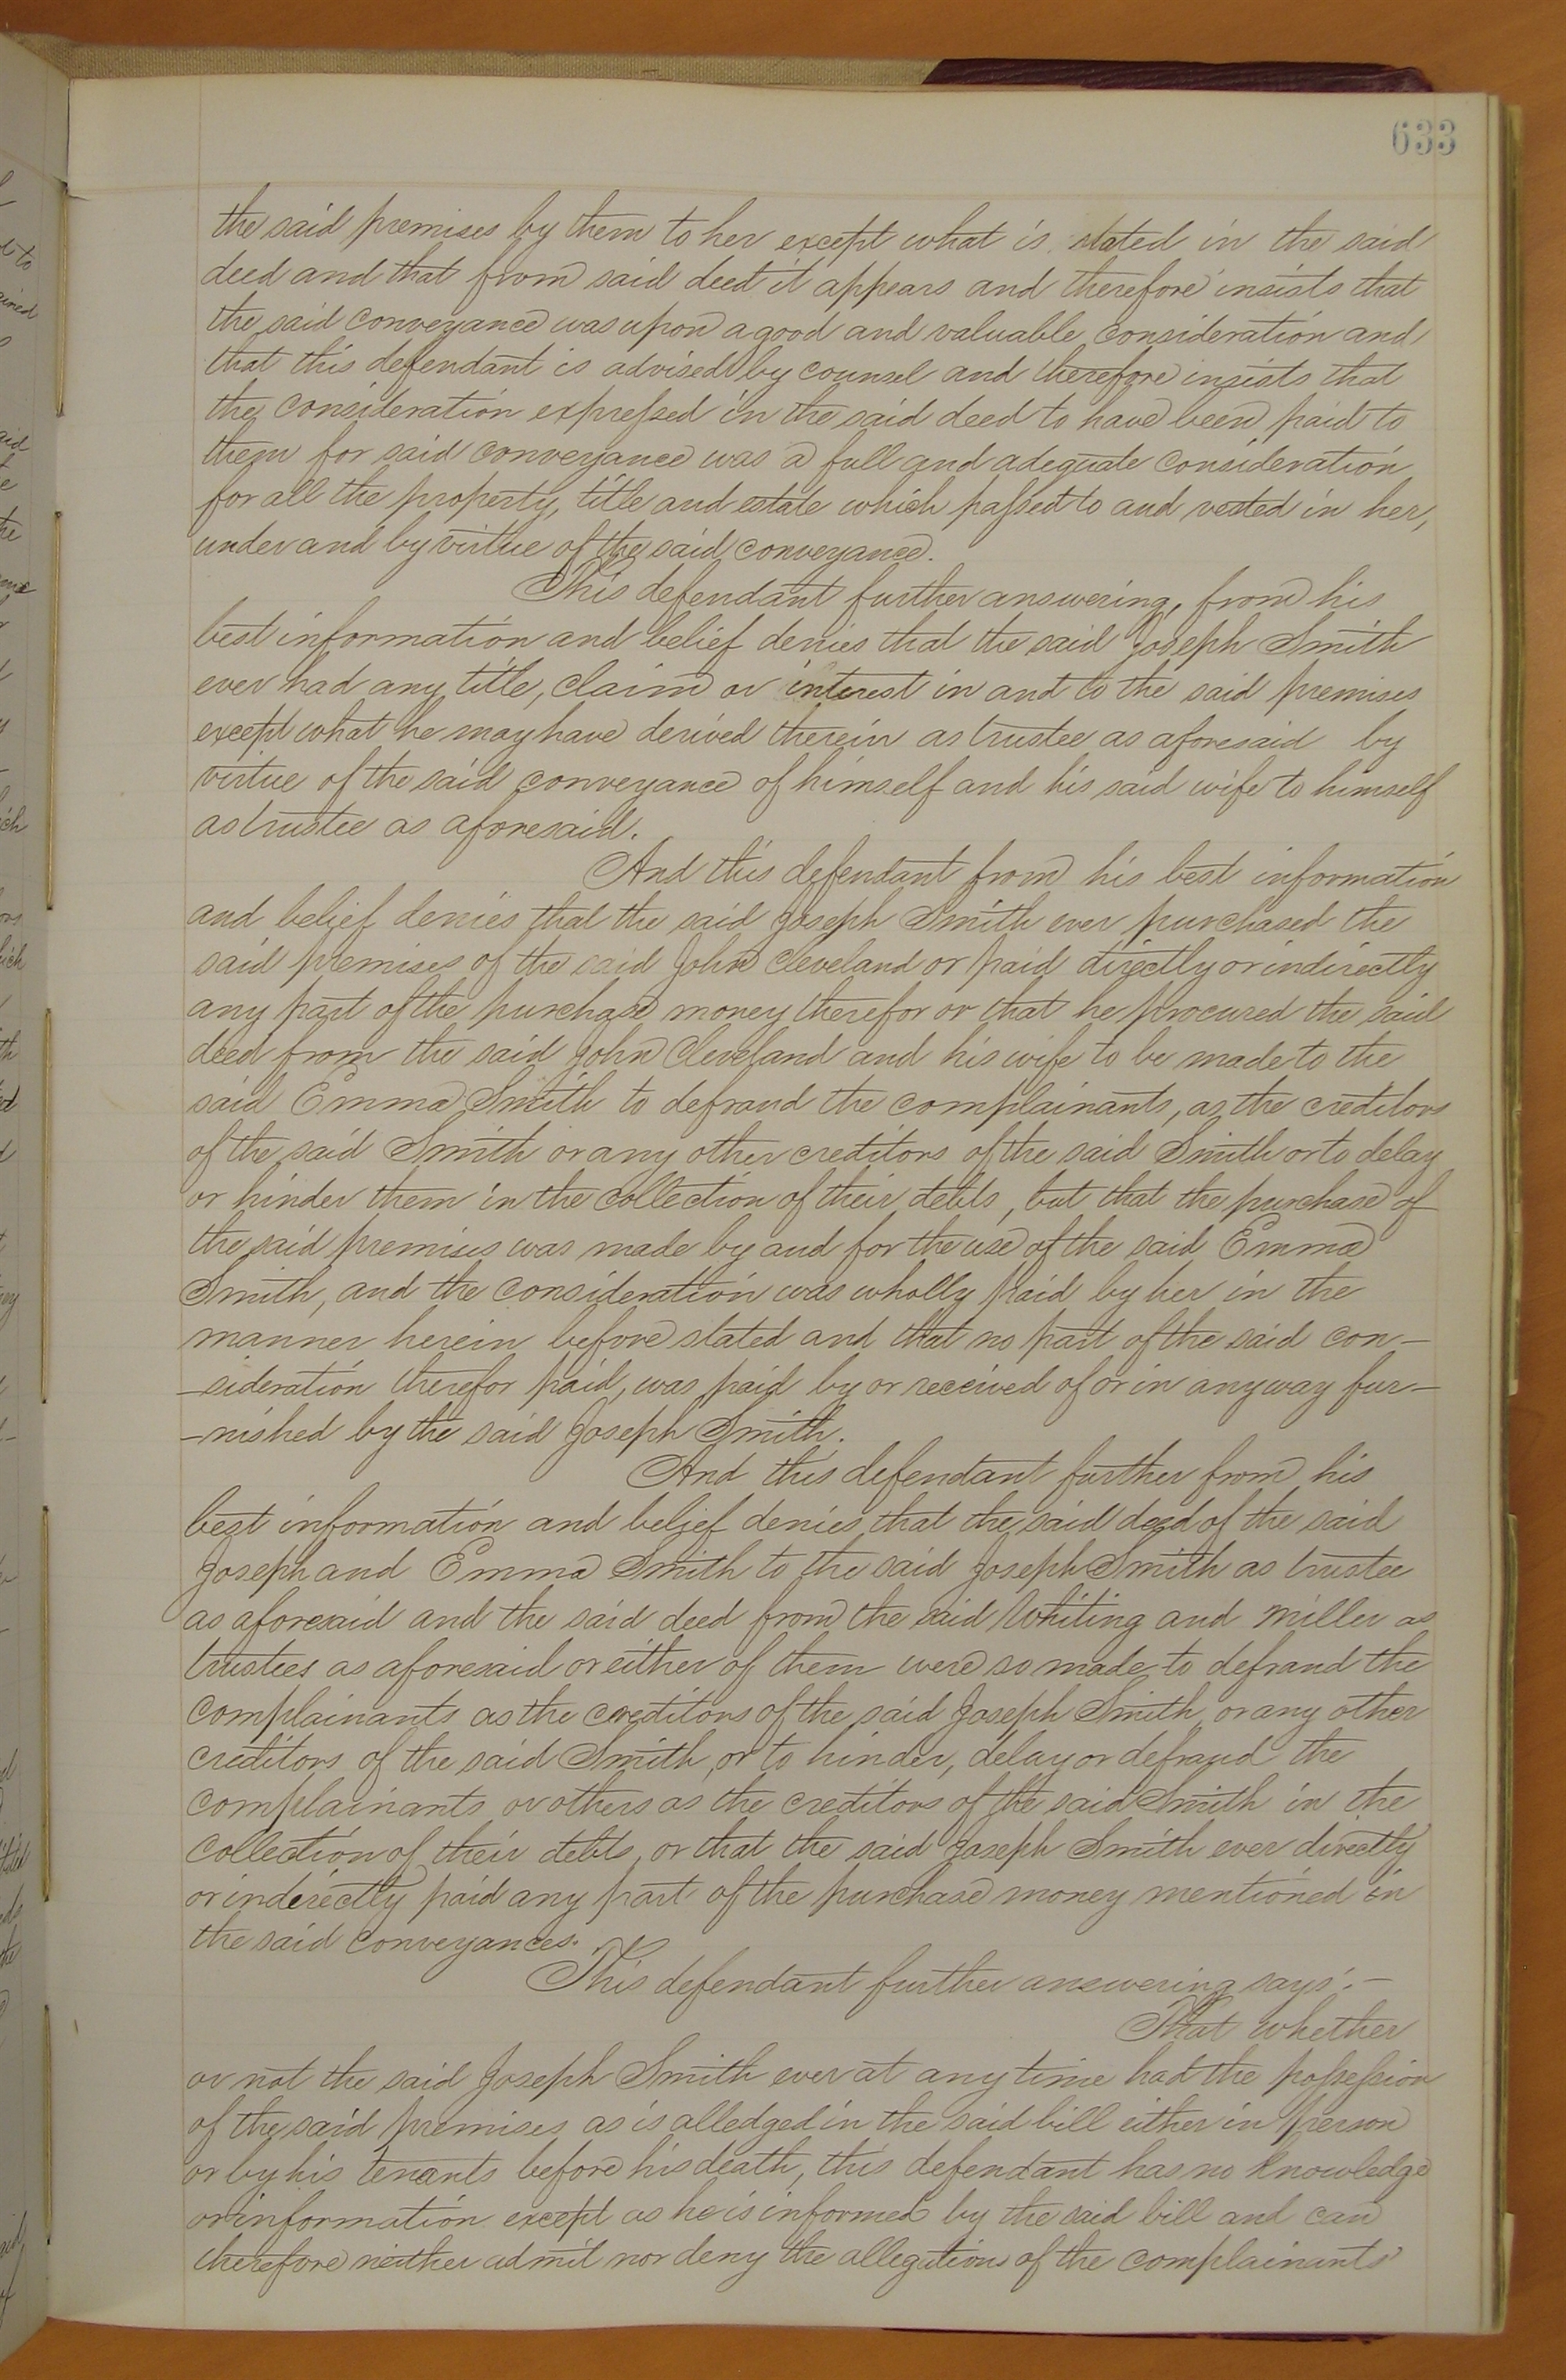 633
the said premises by them to her except what is stated in the said
deed and that from said deed it appears and therefore insists that
the said conveyance was upon a good and valuable consideration and
that this defendant is advised by counsel and therefore insists that
the consideration expressed in the said deed to have been paid to
them for said conveyance was a full and adequate consideration
for all the property, title and estate which passed to and vested in her,
under and by virtue of the said conveyance.
This defendant further answering, from his
best information and belief denies that the said Joseph Smith
ever had any title, claim or interest in and to the said premises
except what he may have derived therein as trustee as aforesaid by
virtue of the said conveyance of himself and his said wife to himself
as trustee as aforesaid.
And this defendant from his best information
and belief denies that the said Joseph Smith ever purchased the
said premises of the said John Cleveland or paid directly or indirectly
any part of the purchase money therefor or that he procured the said
deed from the said John Cleveland and his wife to be made to the
said Emma Smith to defraud the complainants, as the creditors
of the said Smith or any other creditors of the said Smith or to delay
or hinder them in the collection of their debts, but that the purchase of
the said premises was made by and for the use of the said Emma
Smith, and the consideration was wholly paid by her in the
manner herein before stated and that no part of the said con-
-sideration therefor paid, was paid by or received of or in anyway fur-
-nished by the said Joseph Smith.
And this defendant further from his
best information and belief denies that the said deed of the said
Joseph and Emma Smith to the said Joseph Smith as trustee
as aforesaid and the said deed from the said Whiting and Miller as
trustees as aforesaid or either of them were so made to defraud the
complainants as the creditors of the said Joseph Smith or any other
creditors of the said Smith, or to hinder, delay or defraud the
complainants or others as the creditors of the said Smith in the
collection of their debts, or that the said Joseph Smith ever directly
or inderectly paid any part of the purchase money mentioned in
the said conveyances.
This defendant further answering says:-
That whether
or not the said Joseph Smith ever at any time had the possession
of the said premises as is alledged in the said bill either in person
or by his tenants before his death, this defendant has no knowledge
or information except as he is informed by the said bill and can
therefore neither admit nor deny the allegations of the complainants'